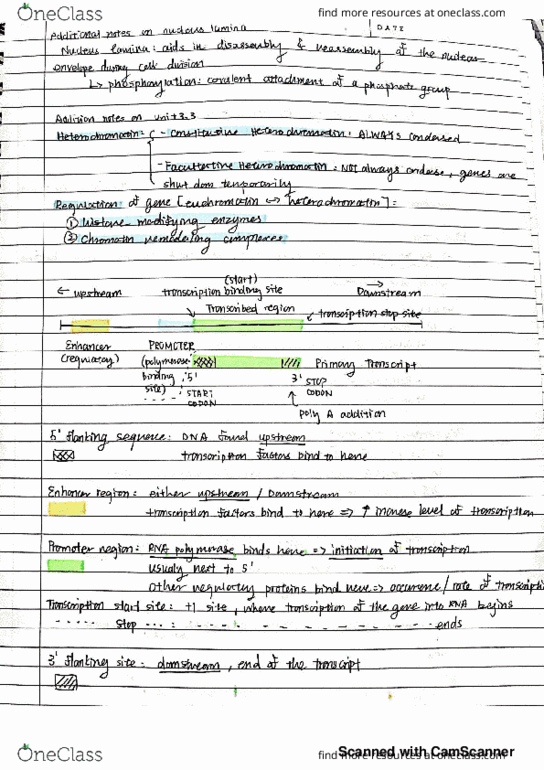 OneClass
find more resources at oneclass.com
Additional notes on nucleus lamina
DATE
Nucleus lamina : aids in disassembly & reassembly of the nuclear
envelope during cell division
↳ phosphorylation : covalent attachment of a phosphate group
Addition notes on unit 3.3
Heterochromatin : - Constitutive Heterochromatin : ALWAYS condensed
- Facultative Heterochromatin : NOT always condense, genes are
shut down temporarily
Regulation of gene [euchromatin ↔ heterochromatin] :
① Histone modifying enzymes
② Chromatin remodeling complexes
(start)
← upstream transcription binding site Downstream →
Transcribed region ← transcription stop site
Enhancer PROMOTER
(regulatory) (polymerase Primary Transcript
binding 5' 3' STOP
site) START CODON
CODON ↑
Poly A addition
5' flanking sequence : DNA found upstream
transcription factors bind to here
Enhancer region : either upstream / Downstream
transcription factors bind to here => ↑ increase level of transcription
Promoter region : RNA polymerase binds here => initiation of transcription
usually next to 5'
other regulatory proteins bind here => occurence / rate of transcripti
Transcription start site : +1 site, where transcription of the gene into RNA begins
stop ends
3' flanking site : downstream, end of the transcript
OneClass
find more resources at oneclass.com
Scanned with CamScanner